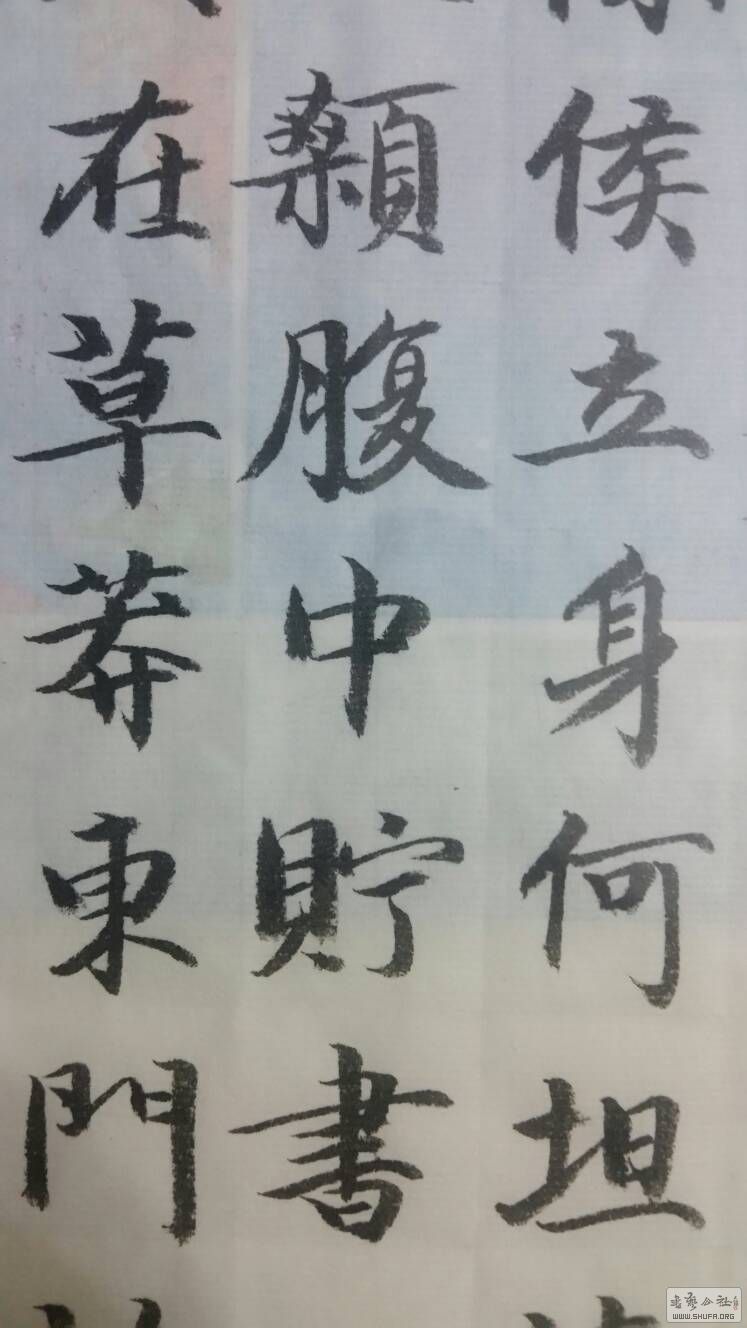 侯立身何坦
顙腹中貯書
在草莽東門
书艺公社
WWW.SHUFA.ORG